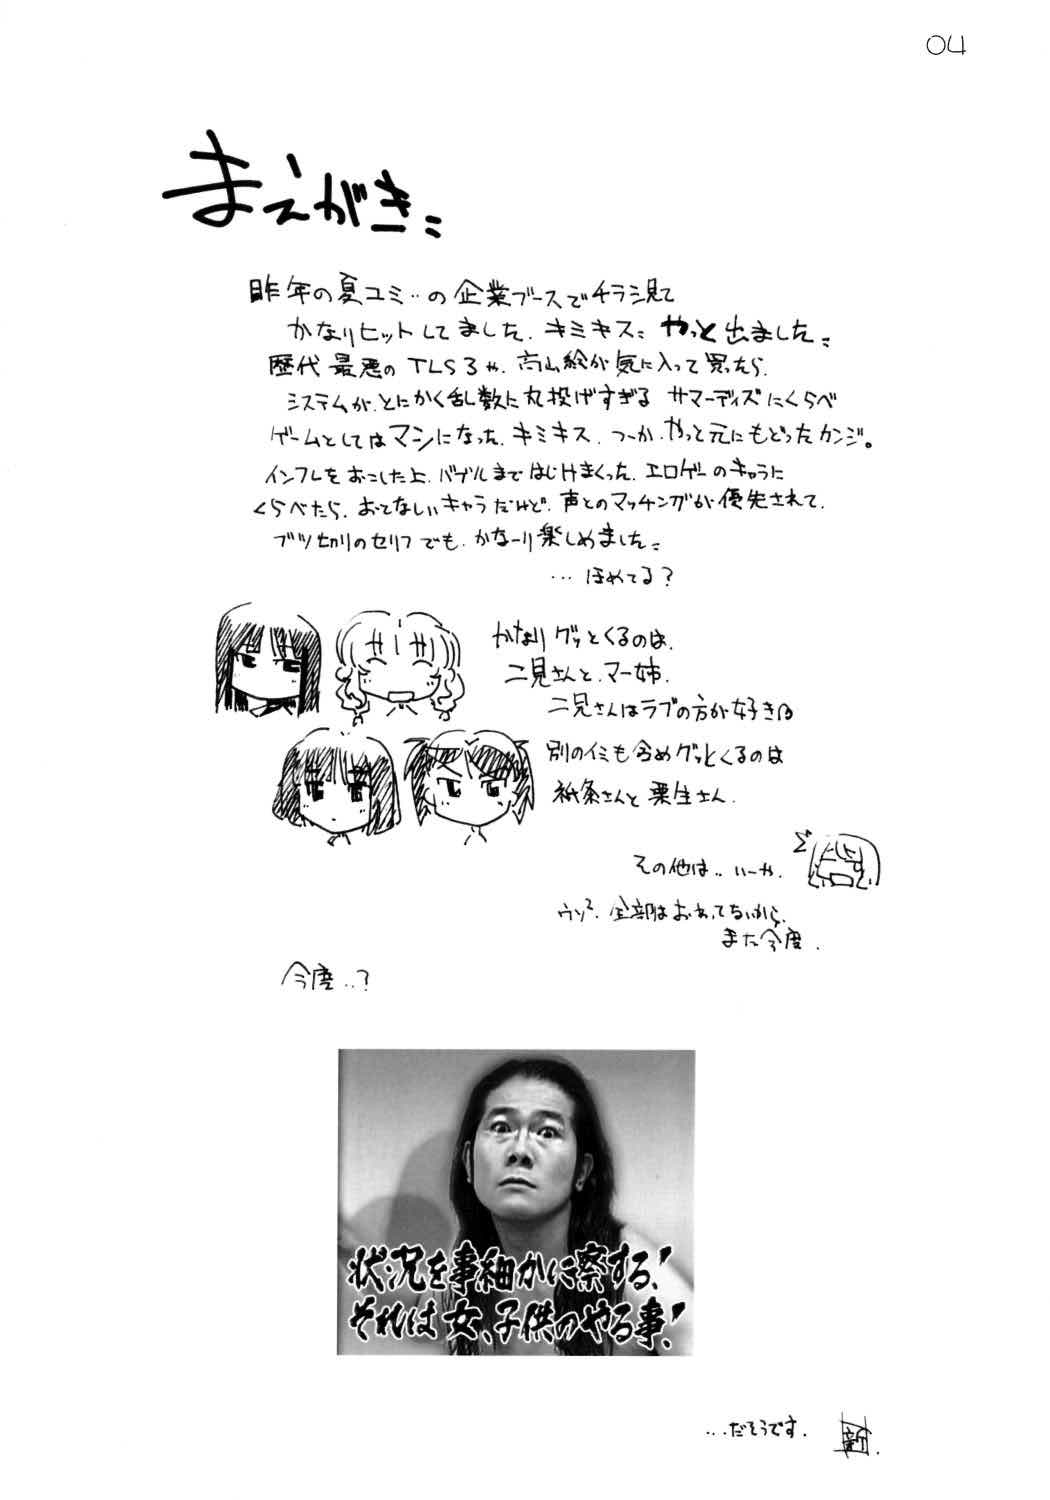 04
まえがき
昨年の夏コミ‥の企業ブースでチラシ見て
かなりヒットしてました. キミキス やっと出ました
歴代最悪のTLS3や、高山絵が気に入って買ったら
システムが、とにかく乱数に丸投げすぎる サマーデイズにくらべ
ゲームとしてはマシになった、キミキス. つーか、やっと元にもどったカンジ。
インフレをおこした上、バブルまではじけまくった、エロゲーのキャラに
くらべたら、おとなしいキャラだけど、声とのマッチングが優先されて、
ブツ切りのセリフでも、かなーり楽しめました
…ほめてる?
かなりグッとくるのは、
二見さんと、マー姉.
二見さんはラブの方が好き
別のイミも含めグッとくるのは
祇条さんと栗生さん.
その他は‥いーや.
ウソ². 全部はおわってないから、
また今度.
今度‥?
状況を事細かに察する!
それは女、子供のやる事!
…だそうです.
新